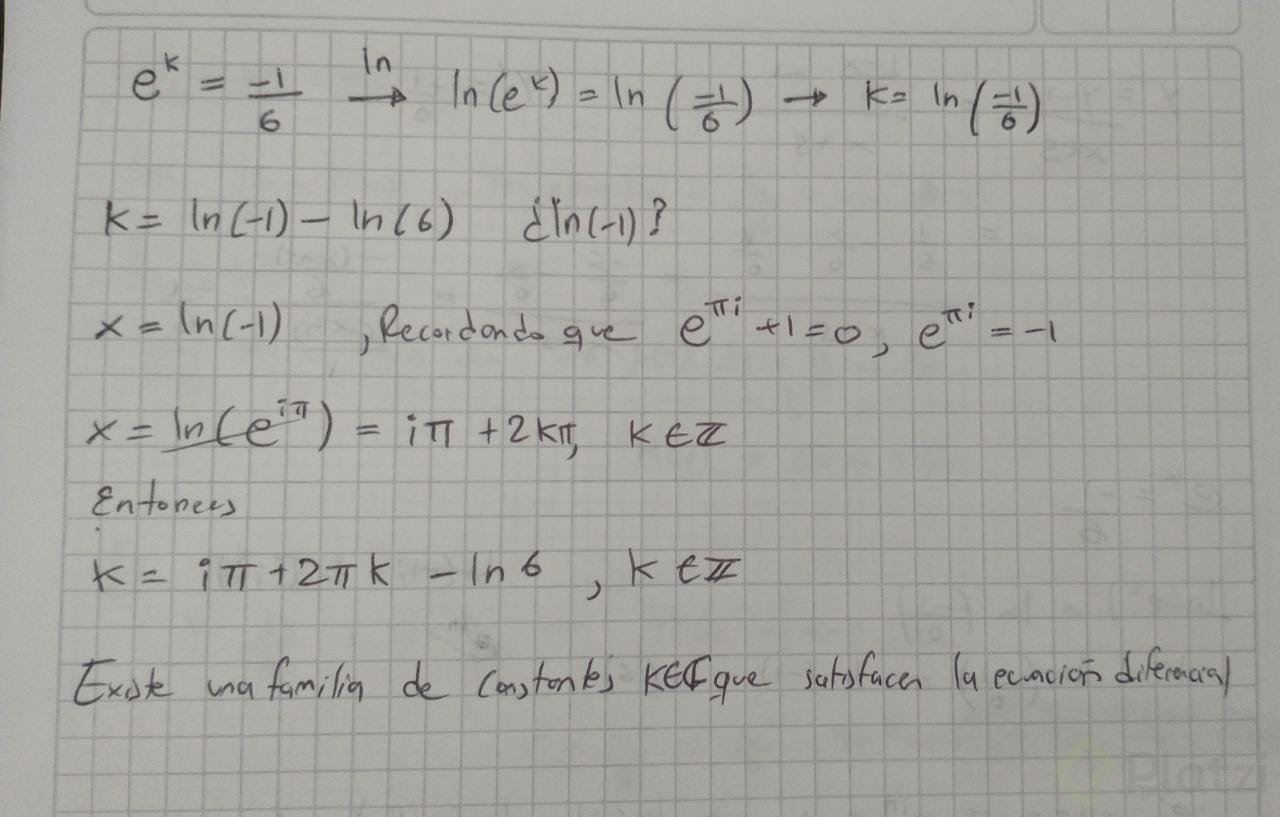 e^k = -1/6 →ln ln(e^k) = ln(-1/6) → k = ln(-1/6)
k = ln(-1) - ln(6) ¿ln(-1)?
x = ln(-1) , Recordando que e^{πi} + 1 = 0, e^{πi} = -1
x = ln(e^{iπ}) = iπ + 2kπ, k ∈ ℤ
Entonces
k = iπ + 2πk - ln 6 , k ∈ ℤ
Existe una familia de constantes K∈ℂ que satisfacen la ecuación diferencial
Platzi